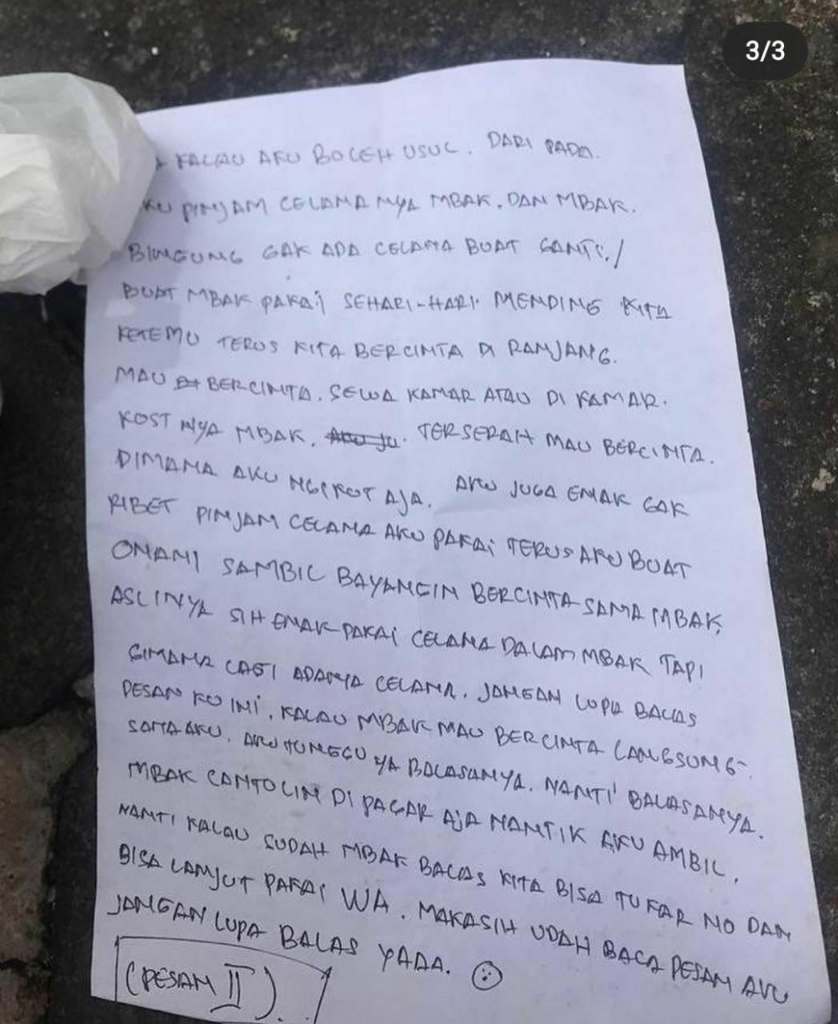 3/3
KALAU AKU BOLEH USUL. DARI PADA.
KU PINJAM CELANA NYA MBAK. DAN MBAK.
BINGUNG GAK ADA CELANA BUAT GANTI. /
BUAT MBAK PAKAI SEHARI-HARI. MENDING KITA
KETEMU TERUS KITA BERCINTA DI RANJANG.
MAU BERCINTA. SEWA KAMAR ATAU DI KAMAR.
KOST NYA MBAK. TERSERAH MAU BERCINTA.
DIMANA AKU NGIKUT AJA. AKU JUGA ENAK GAK
RIBET PINJAM CELANA AKU PAKAI TERUS AKU BUAT
ONANI SAMBIL BAYANGIN BERCINTA SAMA MBAK.
ASLINYA SIH ENAK PAKAI CELANA DALAM MBAK TAPI
GIMANA LAGI ADANYA CELANA. JANGAN LUPA BALAS
PESAN KU INI. KALAU MBAK MAU BERCINTA LANGSUNG
SAMA AKU. AKU TUNGGU YA BALASANYA. NANTI BALASANYA.
MBAK CANTOLIN DI PAGAR AJA NANTIK AKU AMBIL.
NANTI KALAU SUDAH MBAK BALAS KITA BISA TUKAR NO DAN
BISA LANJUT PAKAI WA. MAKASIH UDAH BACA PESAN AKU
JANGAN LUPA BALAS YADA.
(PESAN II).